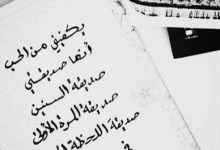 يكفيني من الحب
أنها صديقتي
صديقة السنين
صديقة المرة الأولى
صديقة اللحظة
في